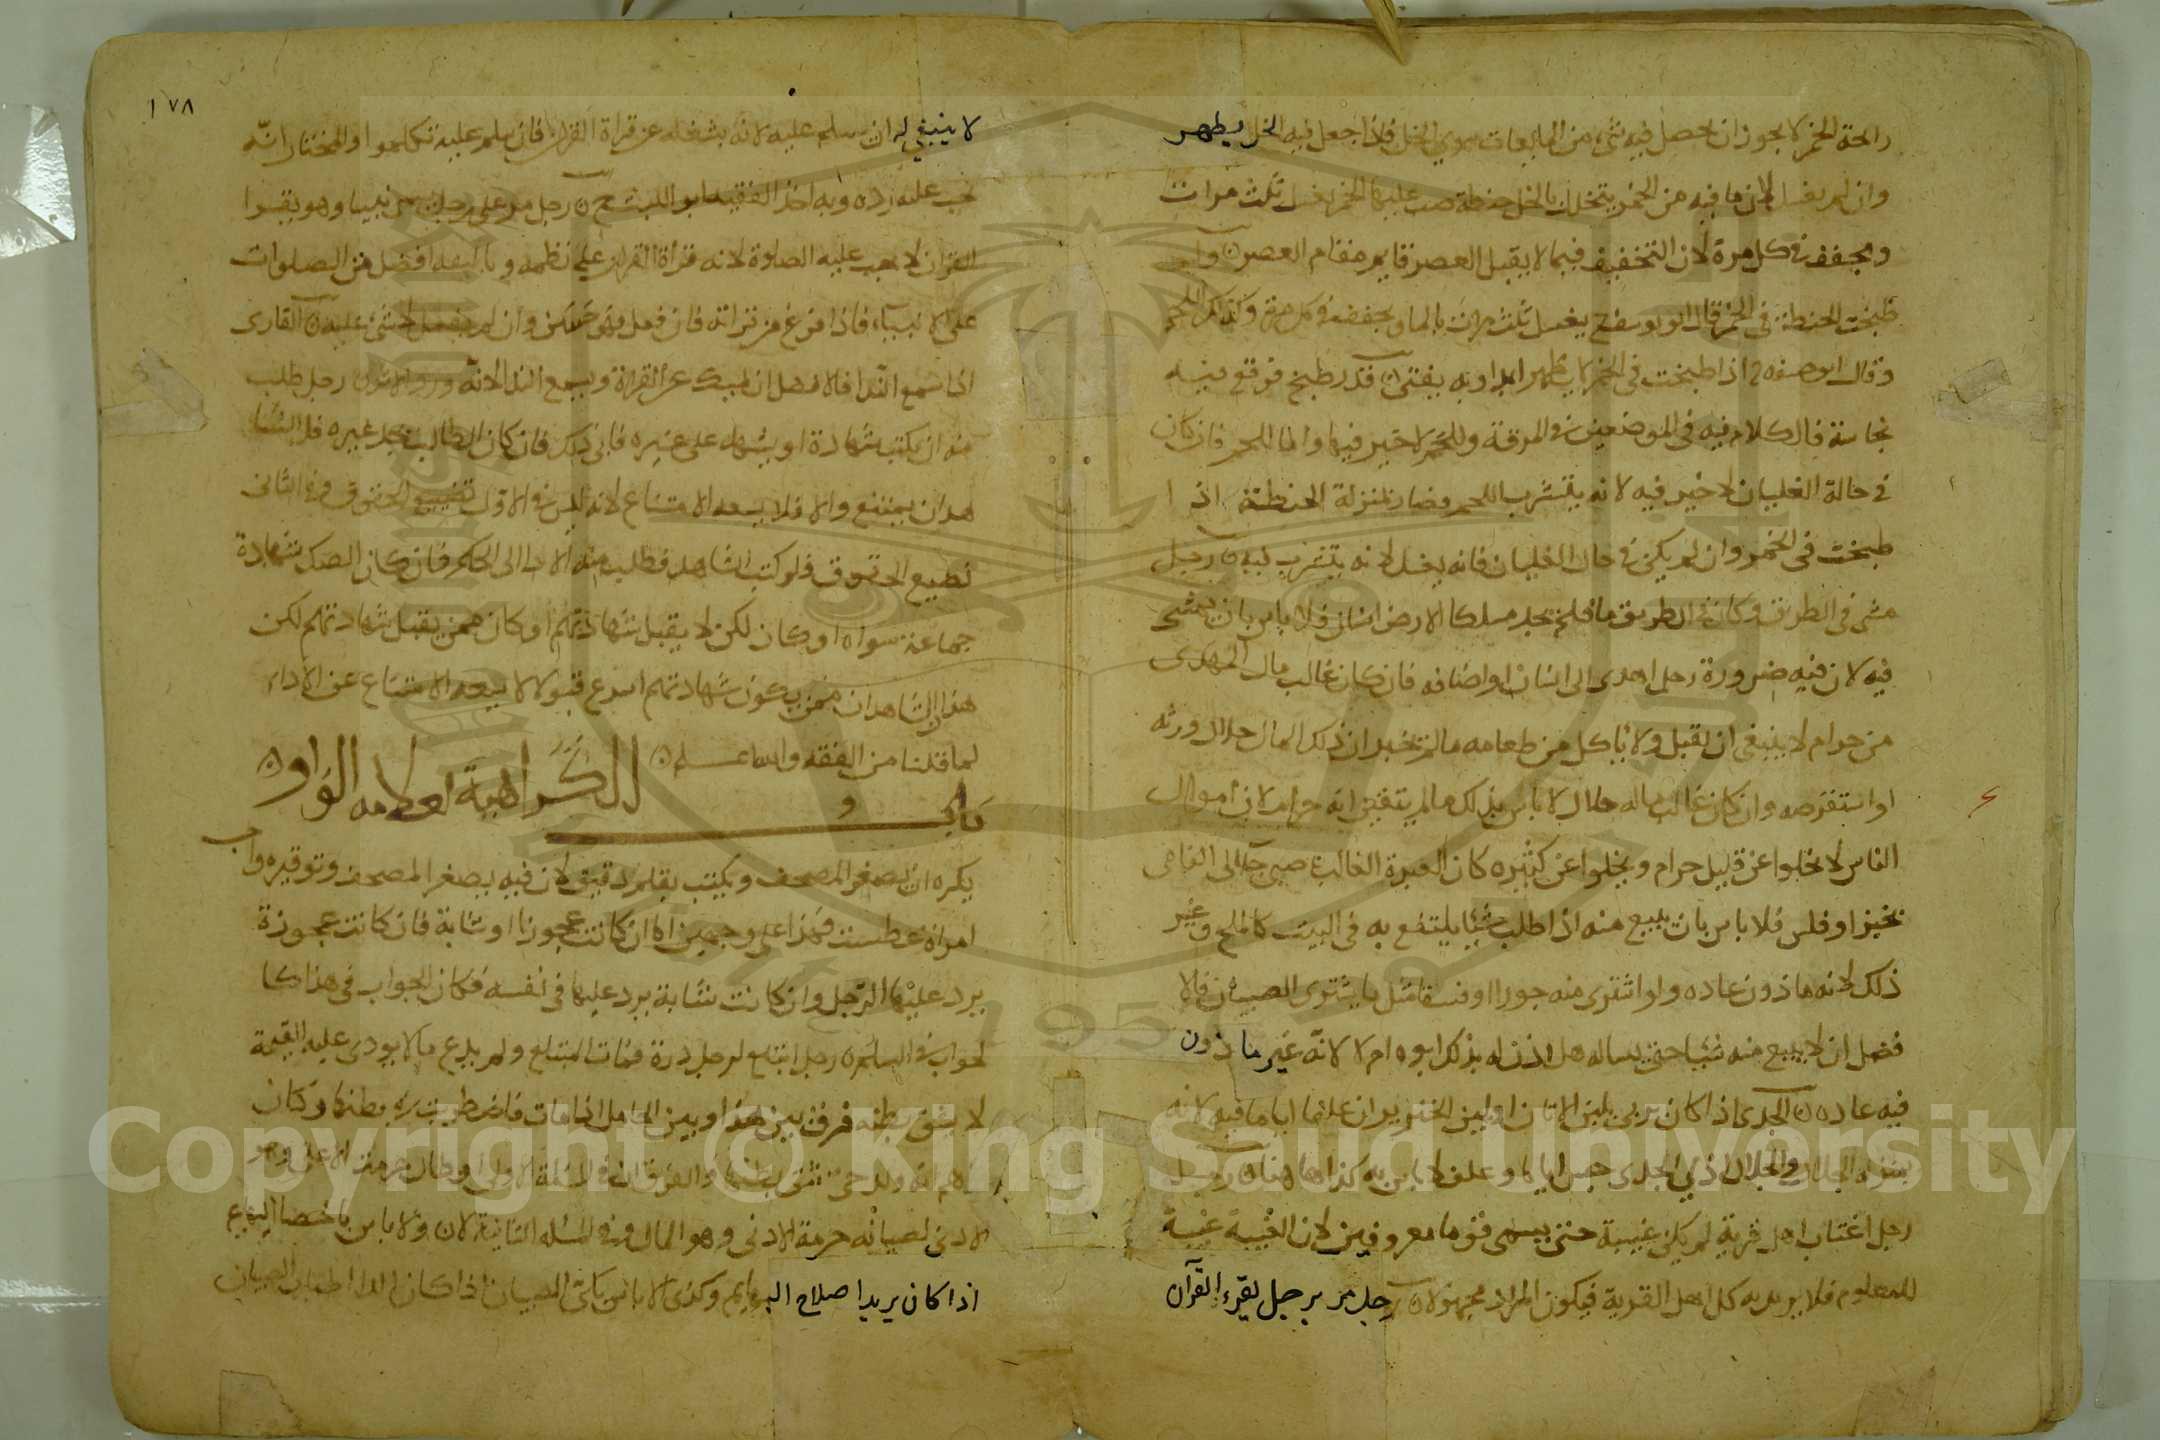 رائحة الخمر لا يجوز ان يحصل فيه شيء من المايعات سوي الخل فاذا جعل فيه الخل يطهر
وان لم يغسل لان ما فيه من الخمر يتخلل بالخل حنطة صب عليها الخمر يغسل ثلث مرات
ويجفف في كل مرة لان التخفيف فيما لا يقبل العصر قايم مقام العصر
طبخت الحنطة في الخمر قال ابو يوسف يغسل ثلث مرات بالماء ويجففه في كل مرة وكذلك اللحم
وقال ابو حنيفة اذا طبخت في الخمر لا يطهر ابدا وبه يفتي قدر طبخ فوقع فيه
نجاسة قال كلام فيه في الموضعين في المرقة واللحم لا خير فيها واما اللحم فان كان
في حالة الغليان لا خير فيه لانه يتشرب اللحم فصار بمنزلة الحنطة اذا
طبخت في الخمر وان لم يكن في حال الغليان فانه يغسل لانه يتشرب فيه رجل
مشى في الطريق وكان في الطريق ماء فلم يجد مسلكا الا ارض انسان فلا باس بان يمشى
فيه لان فيه ضرورة رجل اهدى الى انسان او اضافه فان كان غالب مال المهدى
من حرام لا ينبغي ان يقبل ولا ياكل من طعامه ما لم يخبر ان ذلك المال حلال ورثه
او استقرضه وان كان غالب ماله حلال لا باس بذلك ما لم يتقين انه حرام لان اموال
الناس لا تخلوا عن قليل حرام ويخلوا عن كثيره كان العبرة الغالب صبي جآ الى الفامى
بخبز او فلس فلا باس بان يبيع منه اذا طلب شيئا ينتفع به في البيت كالملح وغير
ذلك لانه ماذون عاده ولو اشترى منه جوزا او فستقا مثل ما يشترى الصبيان فالا
فضل ان لا يبيع منه شيئا حتى يساله هل اذن له بذلك ابوه ام لا لانه غير ماذون
فيه عاده الجدى اذا كان يربى بلبن الاتان او لبن الخنزير ان علف اياما فيه لانه
بمنزلة الجلال والجلال اذا حبس اياما وعلف لا باس به كذا هاهنا رجل
رجل اغتاب اهل قرية لم يكن غيبة حتى يسمى قوما معروفين لان الغيبة غيبة
للمعلوم فلا يريد به كل اهل القرية فيكون المراد مجهولا رجل مر برجل يقرء القرآن
١٧٨
لا ينبغي له ان يسلم عليه لانه يشغله عن قراة القران فان سلم عليه تكلموا والمختار انه
يجب عليه رده وبه اخذ الفقيه ابو الليث رجل مر على رجل نبينا وهو يقرا
القران لا يجب عليه الصلوة لانه قراة القران على نظمه وتاليفه افضل من الصلوات
على الانبياء فاذا فرغ من قراته فان فعل فهو حسن وان لم يفعل لا شئ عليه القارى
اذا سمع الندا فالافضل ان يمسك عن القراة ويسمع الندا لانه رجل طلب
منه ان يكتب شهادة او يشهد على غيره فابى ذلك فان كان الطالب يجد غيره فللشا
هد ان يمتنع والا فلا يسعه الامتناع لانه ليس في الاول تضييع الحقوق وفي الثاني
تضييع الحقوق فلو كتب الشاهد فطلب منه الاداء الى الحاكم فان كان الصك شهادة
جماعة سواه او كان لكن لا يقبل شهادتهم او كان ممن يقبل شهادتهم لكن
هذا الشاهد ان ممن يكون شهادتهم اسرع قبولا لا يسعه الامتناع عن الاداء
لما قلنا من الفقه والله اعلم
باب الكراهية بعلامة الواو
يكره ان يصغر المصحف ويكتب بقلم دقيق لان فيه يصغر المصحف وتوقيره واجب
امراة عطست فهذا على وجهين اما ان كانت عجوزا او شابة فان كانت عجوزة
يرد عليها الرجل وان كانت شابة يرد عليها في نفسه فكان الجواب في هذا كا
لجواب في السلام رجل ابتلع لرجل درة فمات المبتلع ولم يدع مالا يودى عليه القيمة
لا يشق بطنه فرق بين هذا وبين الحامل اذا مات فاضطرب في بطنها وكان
انه ولد حي تشق بطنها والفرق ان في المسئلة الاولى ابطال حرمة الاعلى وهو
الادنى لصيانه حرمة الادنى وهو المال وفي المسئله الثانية لان ولا باس باخصا البهايم
اذا كان يريد اصلاح البهايم وكذى لا باس بكى الصبيان اذا كان لداء اصاب الصبيان
Copyright © King Saud University